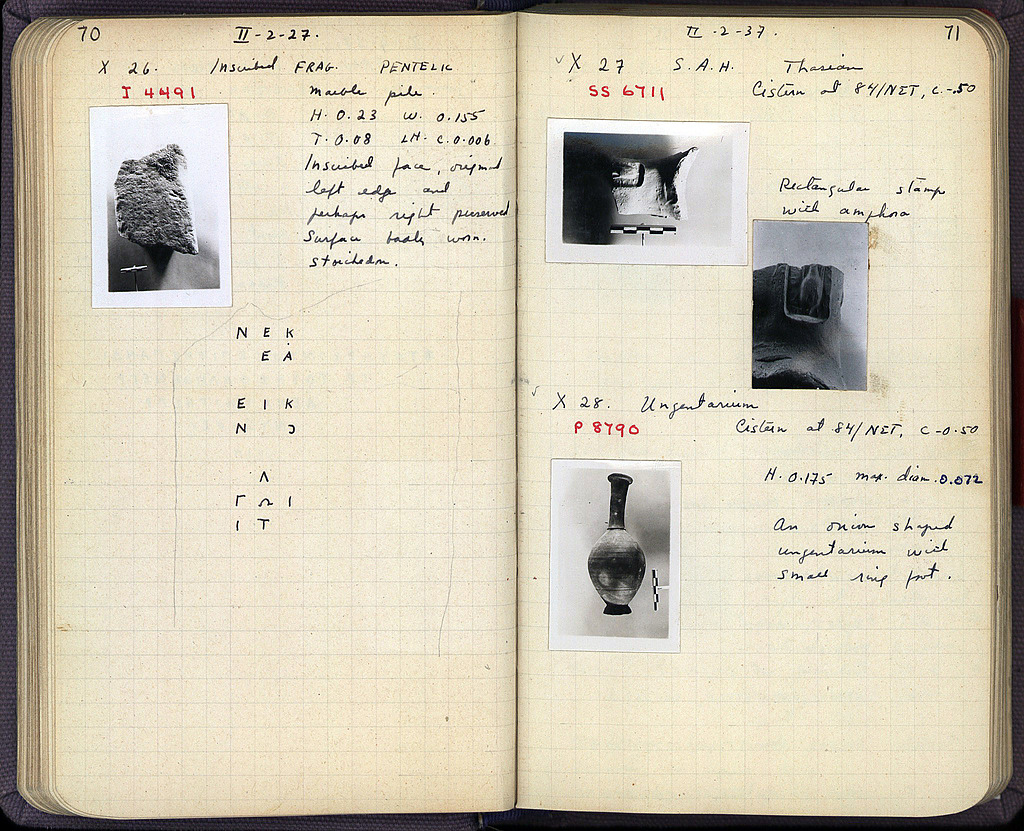 70
II-2-27.
X 26. Inscribed FRAG. PENTELIC
I 4491
marble pile.
H. 0.23 W. 0.155
T. 0.08 LH. C. 0.006
Inscribed face, original
left edge and
perhaps right preserved
Surface badly worn.
Stoichedon.
N E K
E A
E I K
N Ɔ
Λ
Γ Ω I
I T
71
II-2-37.
X 27 S.A.H. Thasian
SS 6711
Cistern at 84/NET, C.-.50
Rectangular stamp
with amphora
X 28. Ungentarium
P 8790
Cistern at 84/NET, C-0.50
H. 0.175 max. diam. 0.072
An onion shaped
ungentarium with
small ring foot.